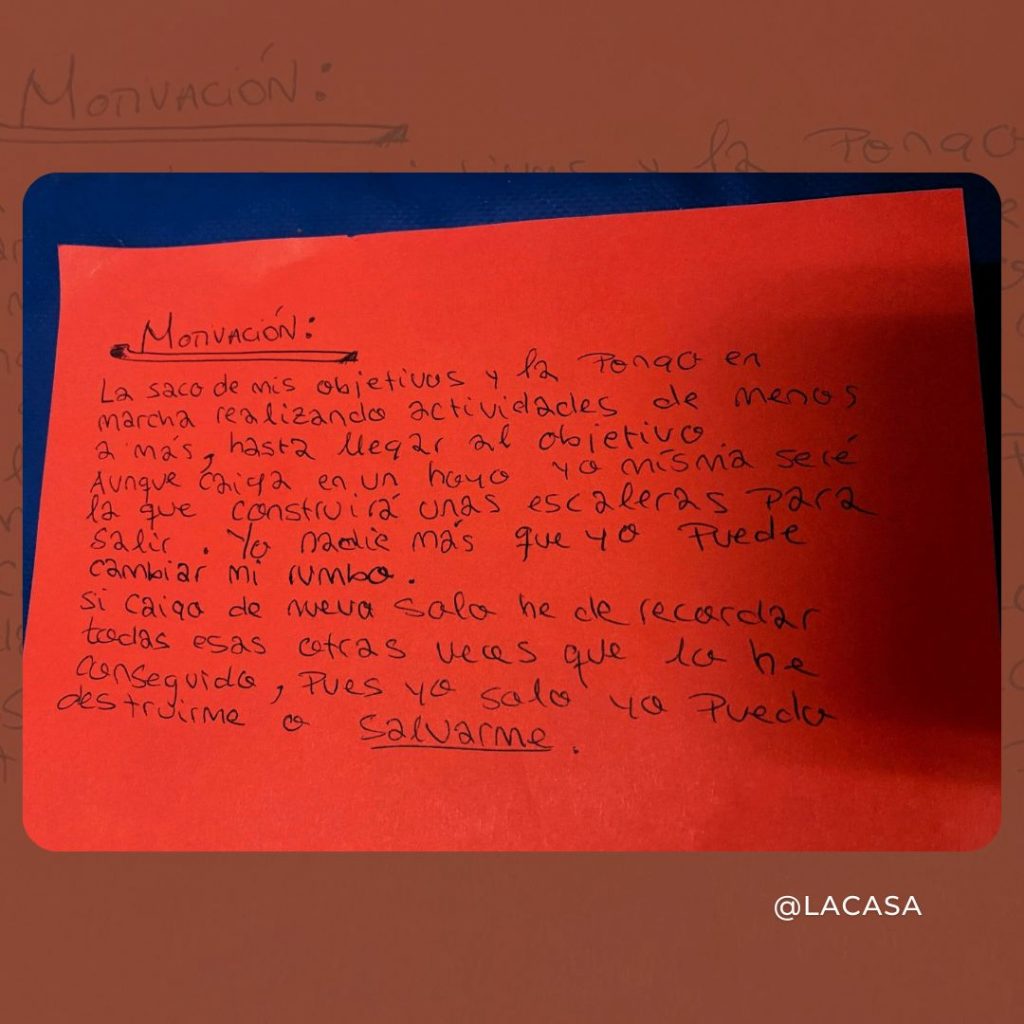 MOTIVACIÓN:
la Pongo
MOTIVACIÓN:
La saco de mis objetivos y la Pongo en
marcha realizando actividades de menos
a más, hasta llegar al objetivo.
Aunque caiga en un hoyo yo mísma seré
la que construirá unas escaleras para
salir. Yo nadie más que yo Puede
cambiar mi rumbo.
Si caigo de nuevo solo he de recordar
todas esas otras veces que lo he
conseguido, Pues yo solo yo Puedo
destruirme o salvarme.
@LACASA